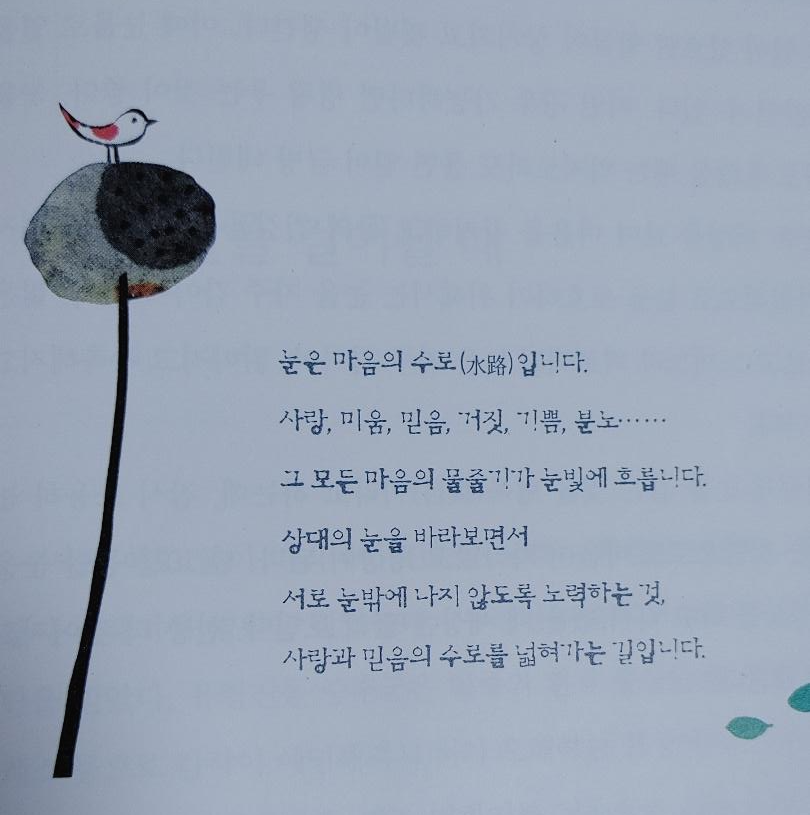 눈은 마음의 수로(水路)입니다.
사랑, 미움, 믿음, 거짓, 기쁨, 분노……
그 모든 마음의 물줄기가 눈빛에 흐릅니다.
상대의 눈을 바라보면서
서로 눈밖에 나지 않도록 노력하는 것,
사랑과 믿음의 수로를 넓혀가는 길입니다.